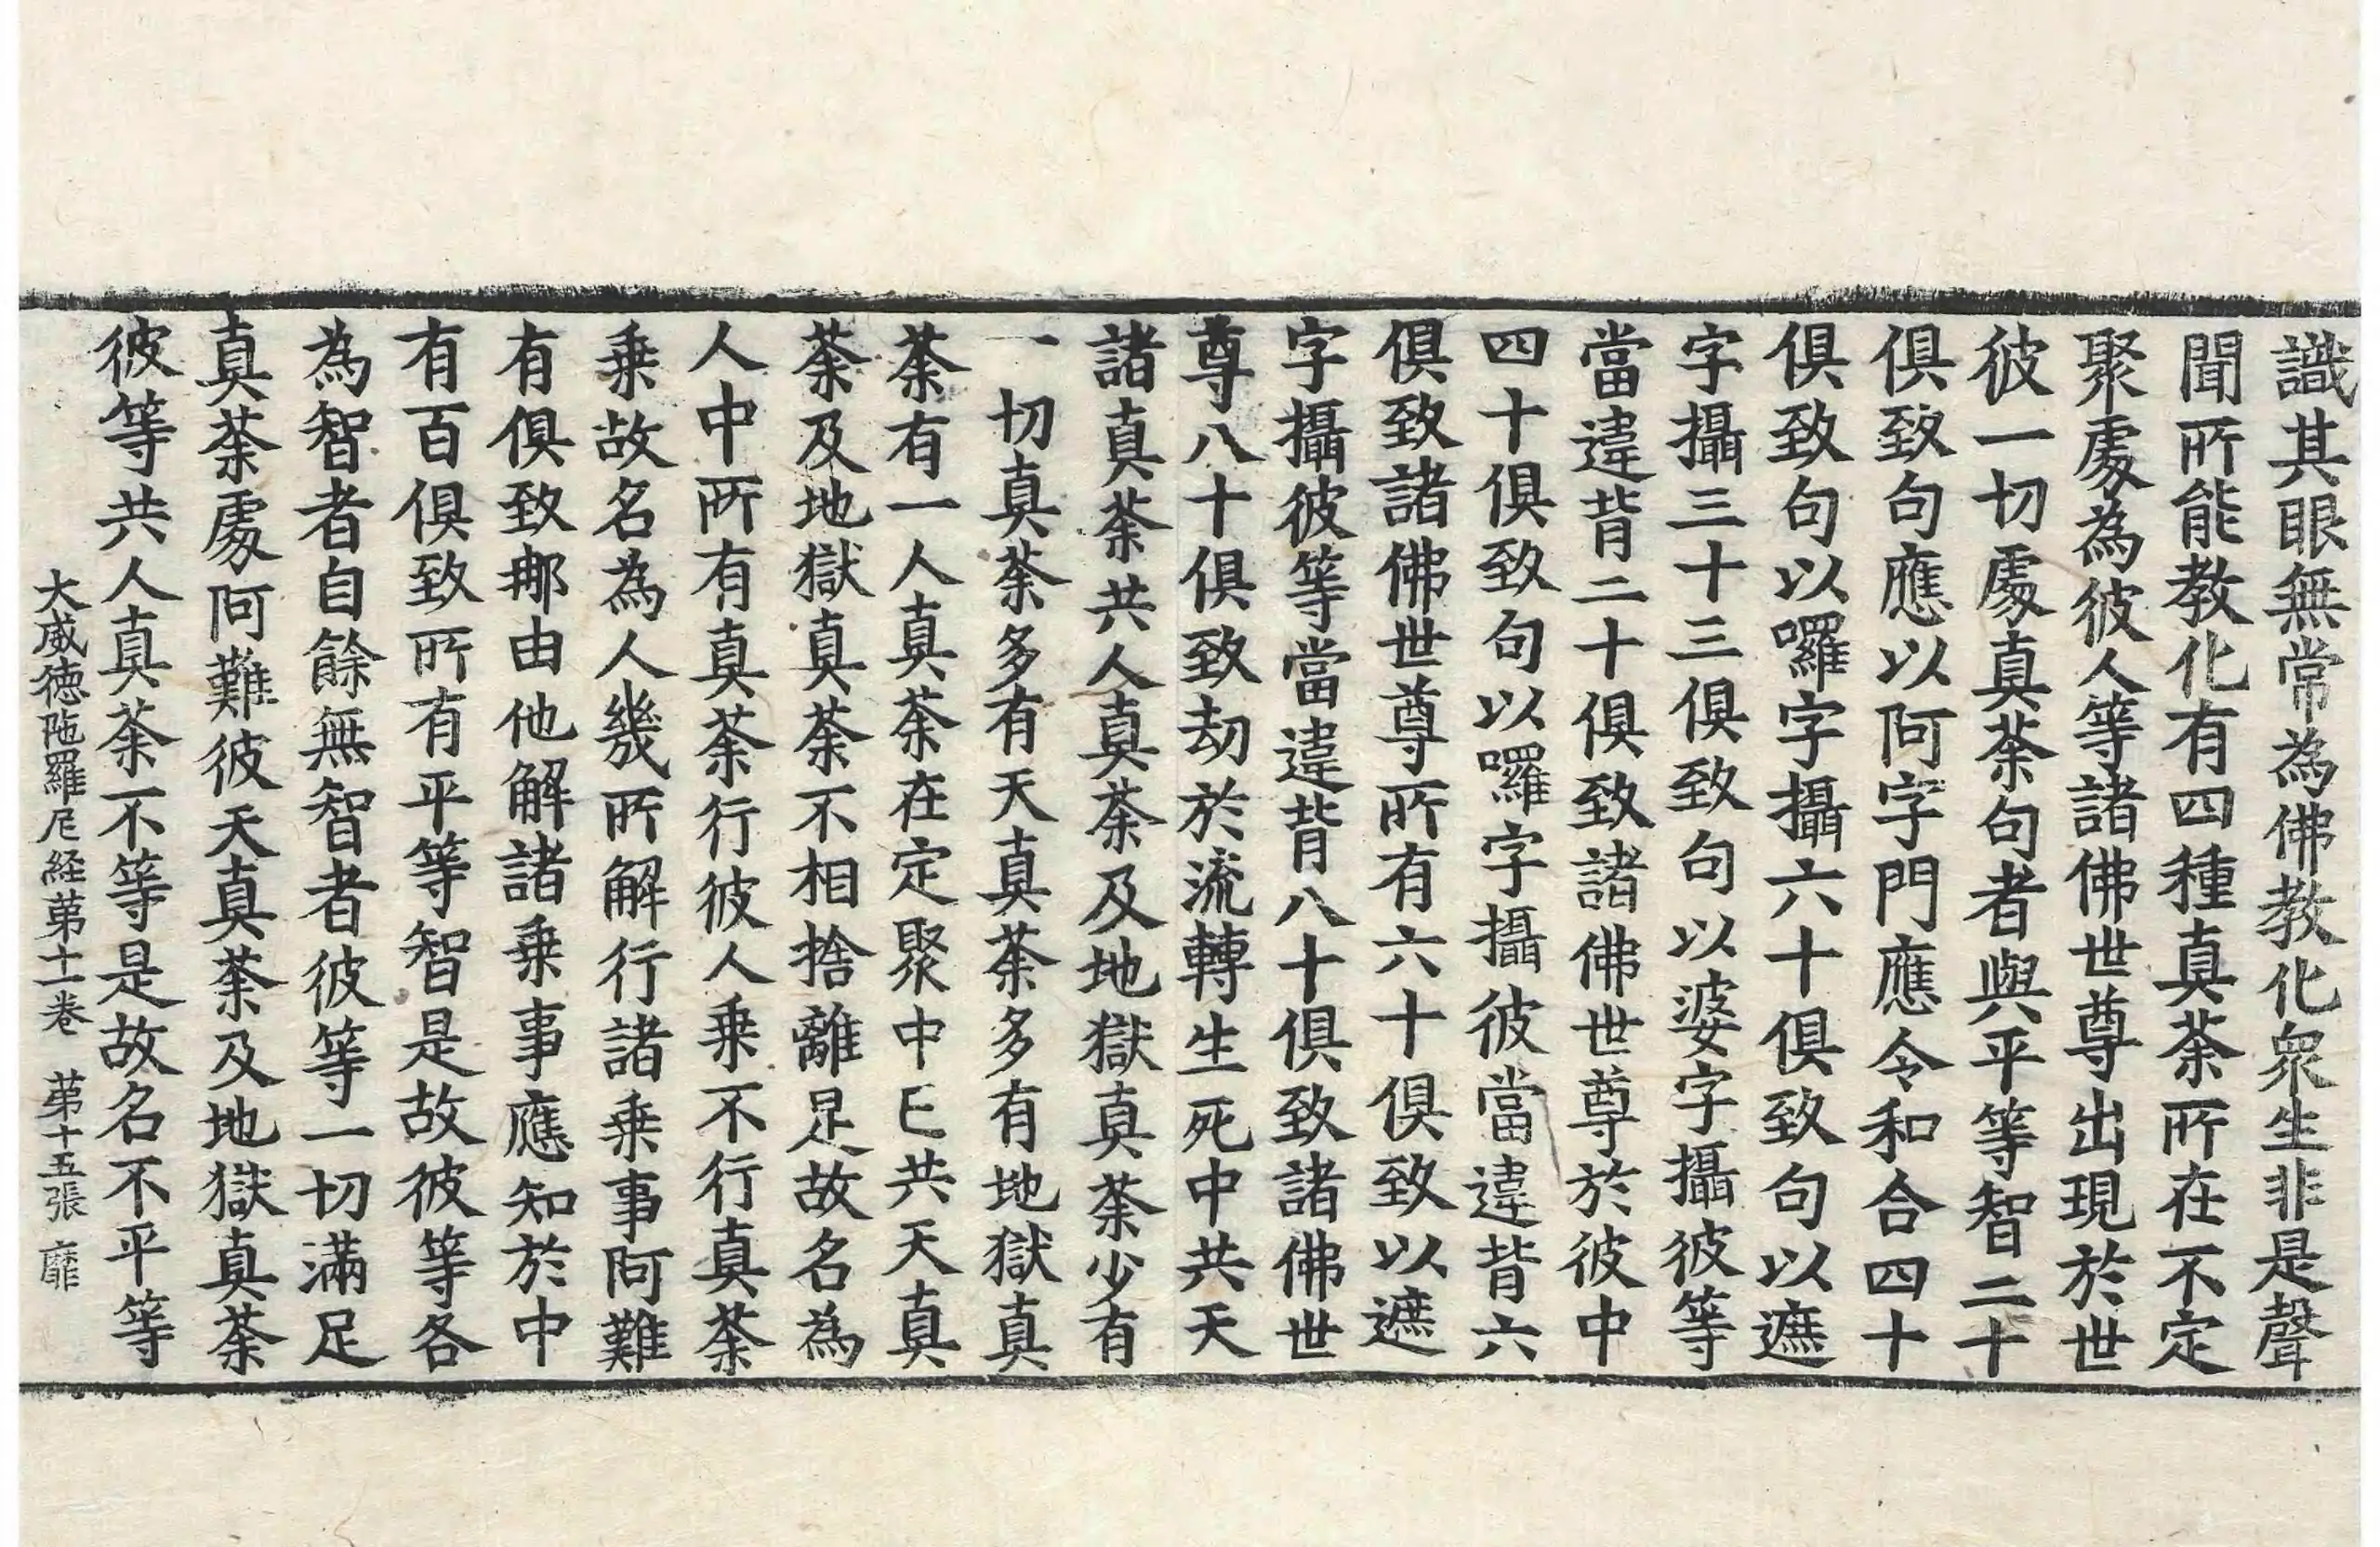 識其眼無常為佛教化衆生非是聲
聞所能教化有四種真荼所在不定
聚處為彼人等諸佛世尊出現於世
彼一切處真荼句者與平等智二十
俱致句應以阿字門應令和合四十
俱致句以囉字攝六十俱致句以遮
字攝三十三俱致句以婆字攝彼等
當違背二十俱致諸佛世尊於彼中
四十俱致句以囉字攝彼當違背六
俱致諸佛世尊所有六十俱致以遮
字攝彼等當違背八十俱致諸佛世
尊八十俱致劫於流轉生死中共天
諸真荼共人真荼及地獄真荼少有
一切真荼多有天真荼多有地獄真
荼有一人真荼在定聚中已共天真
荼及地獄真荼不相捨離是故名為
人中所有真荼行彼人乗不行真荼
乗故名為人幾所解行諸乗事阿難
有俱致那由他解諸乗事應知於中
有百俱致所有平等智是故彼等各
為智者自餘無智者彼等一切滿足
真荼處阿難彼天真荼及地獄真荼
彼等共人真荼不等是故名不平等
大威徳陁羅尼経苐十一卷 苐十五張 靡